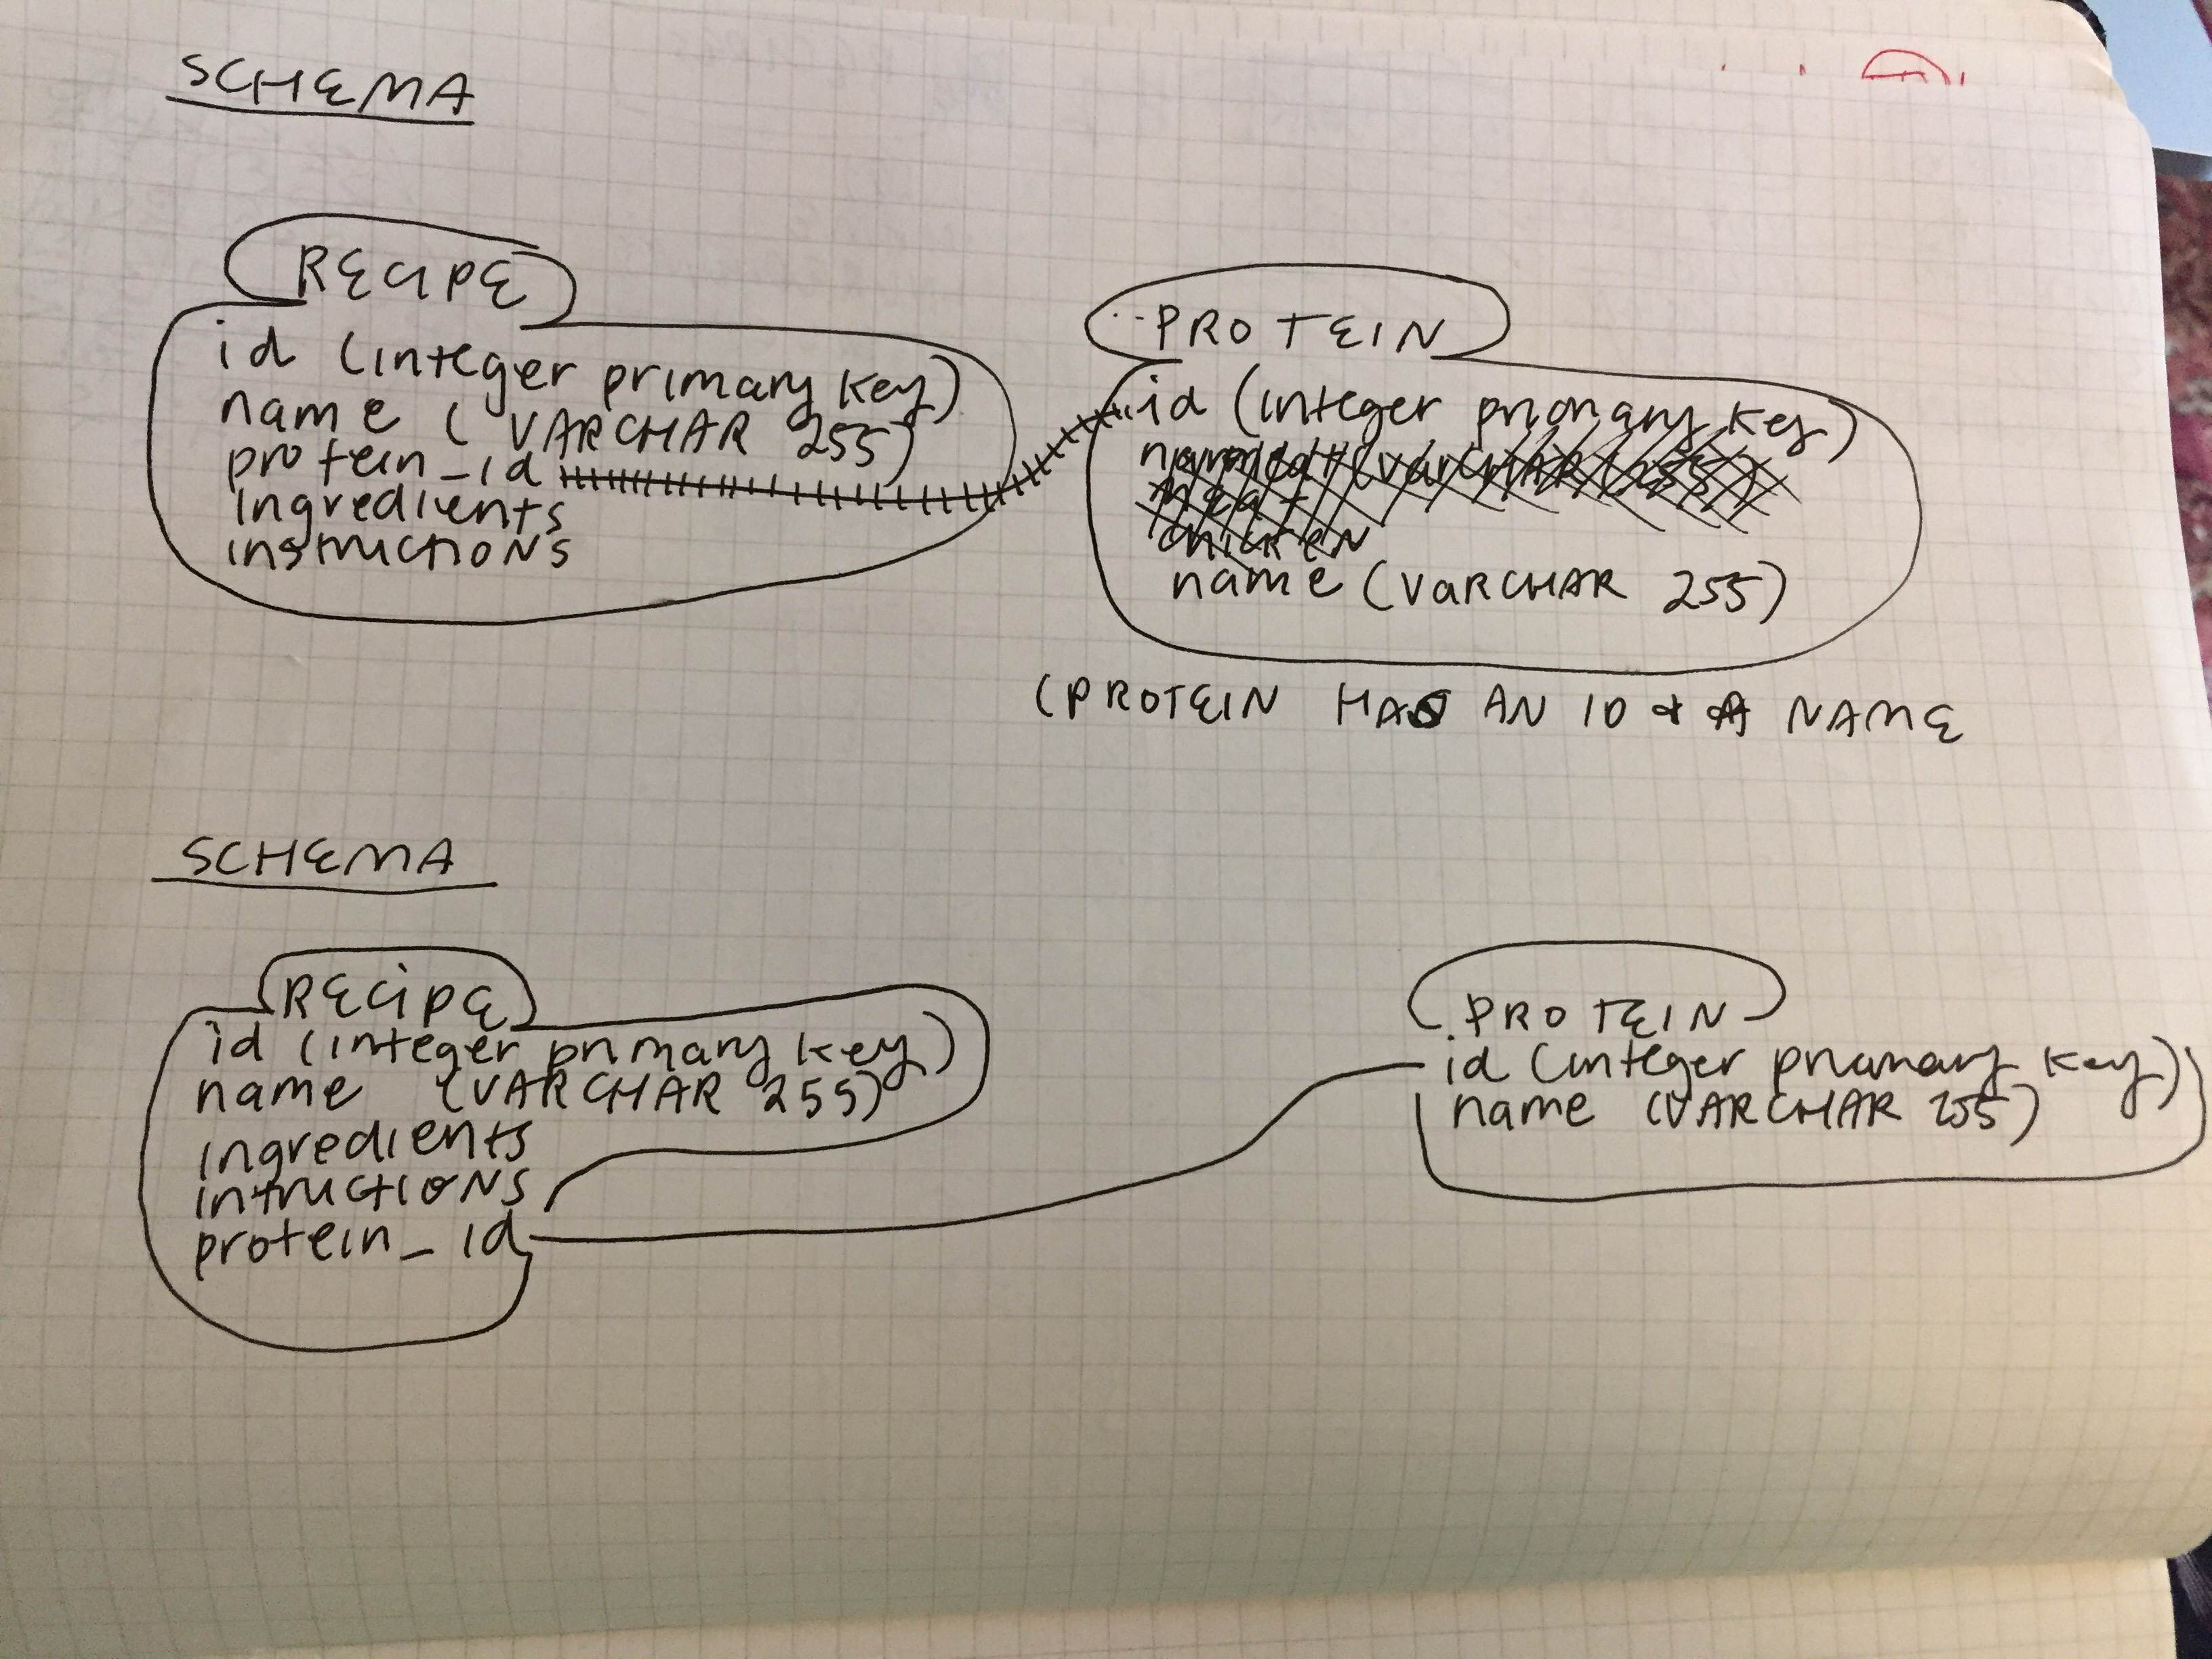 SCHEMA
RECIPE
id (integer primary key)
name (VARCHAR 255)
protein_id
ingredients
instructions
PROTEIN
id (integer primary key)
(VARCHAR 255)
meat
chicken
name (VARCHAR 255)
(PROTEIN HAS AN ID & A NAME
SCHEMA
RECIPE
id (integer primary key)
name (VARCHAR 255)
ingredients
intructions
protein_id
PROTEIN
id (integer primary key)
name (VARCHAR 255)